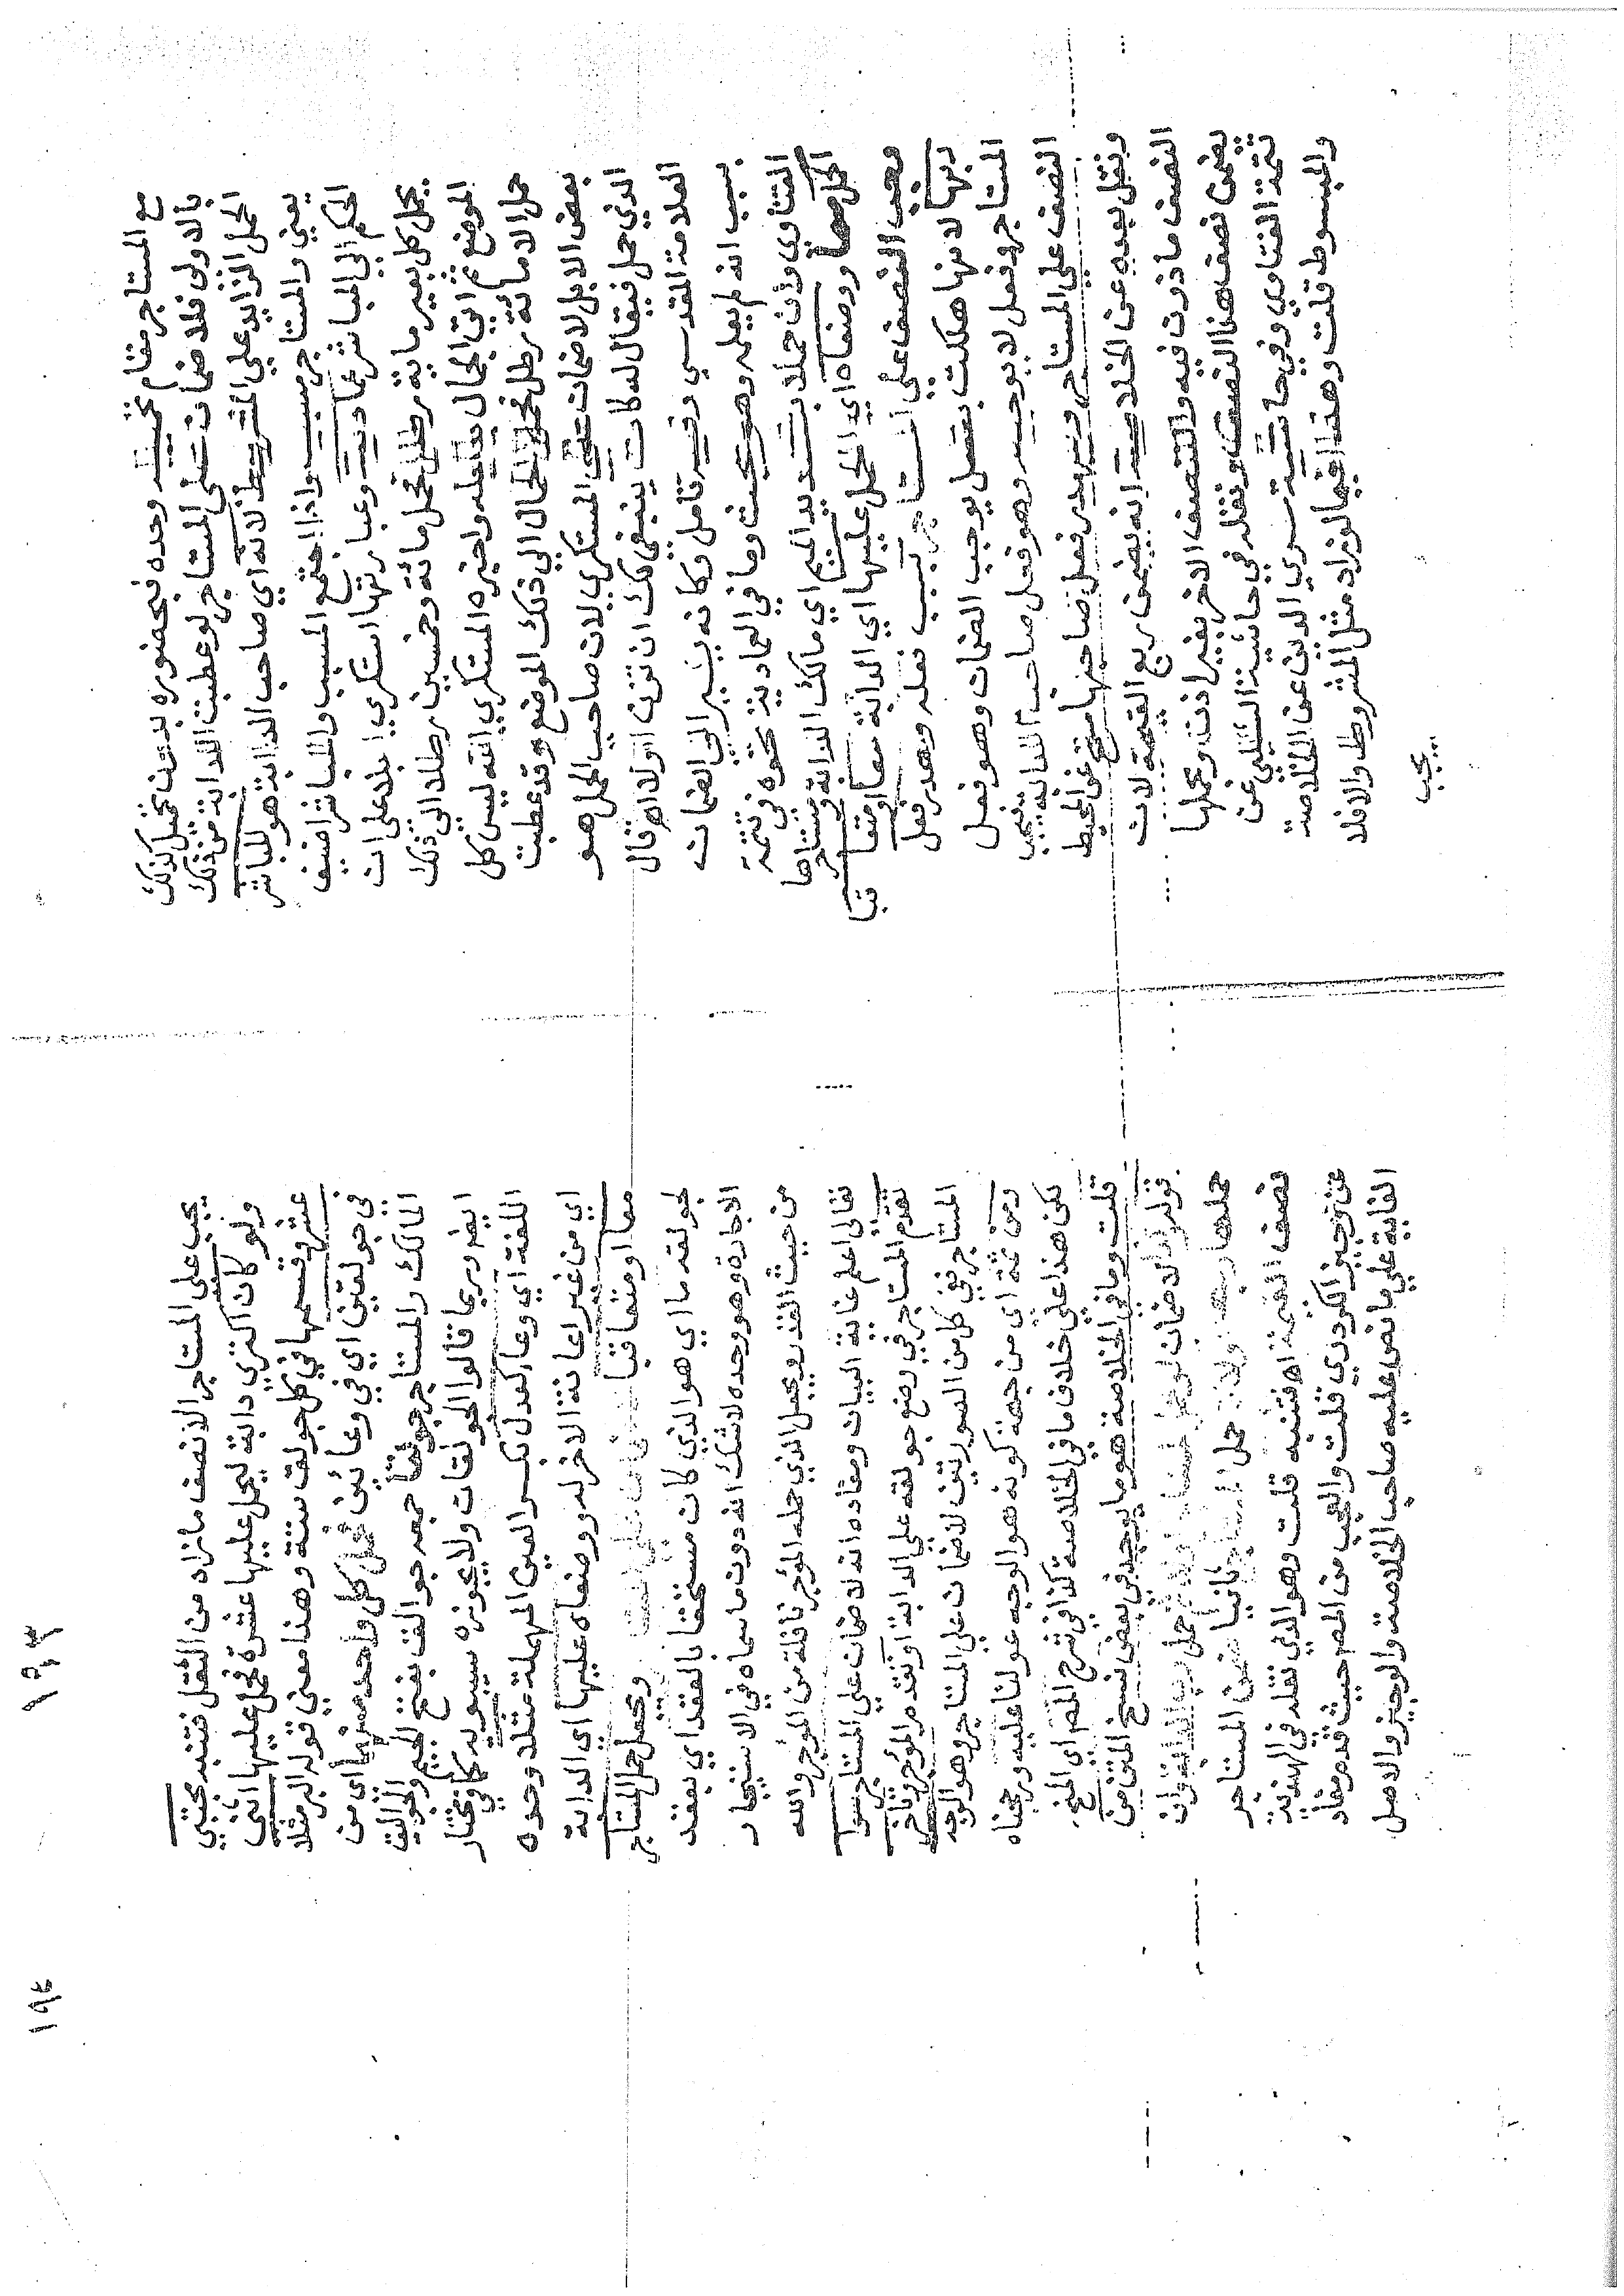 مع المستاجر مقام تحميله وحده فبحضوره بدون تحميل كذلك
بالاولى فلا ضمان على المستاجر لو عطبت الدابة من ذلك
الحمل الزايد علي المشروط لانه اي صاحب الدابة هو المباشر
يعني والمستاجر مسبب واذا اجتمع المسبب والمباشر اضيف
الحكم الي المباشر عمادية وعبارتها استكري ابلا على ان
يحمل كل بعير ماية رطل فحمل مائة وخمسين رطلا الى ذلك
الموضع ثم اتى الجمال بابله واخبره المستكري انه ليس كل
حمل الا مائة رطل فحمل الجمال الي ذلك الموضع وقد عطبت
بعض الابل لا ضمان على المستكري لان صاحب الحمل هو
الذي حمل فيقال له كان ينبغي لك ان تزن اولا اه قال
العلامة المقدسي وفيه تامل وكانه يشير الي الضمان
بسبب انه لم يعلمه وهو بحث وما في العمادية نحوه في تتمة
الفتاوى وان حملا بتشديد الميم اي مالك الدابة ومستاجرها
الحمل معا ووضعاه اي الحمل عليها اي الدابة معا او متعا قبا
وجب النصف علي المستاجر بسبب فعله وهدر فعل
ربها لانها هلكت بفعل يوجب الضمان وهو فعل
المستاجر وفعل لا يوجبه وهو فعل صاحب الدابة فيجب
النصف علي المستاجر ويهدر فعل صاحبها منح عن المحيط
ونقل بعده عن الخلاصة انه يضمن ربع القيمة لان
النصف ماذون فيه والنصف الاخر بغير اذن وبحملها
يضمن نصف هذا النصف ونقله في حاشية الشلبي عن
تتمة الفتاوي وفي حاشية سري الدين عن الخلاصة
والمبسوط قلت وهذا فيما لو زاد مثل المشروط والا فلا
يجب
يجب على المستاجر الا نصف ما زاد من الثقل فتنبه مجتبي
ولو كان اكتري دابة ليحمل عليها عشرة فحمل عليها اثني
عشر وقسمها في كل جولق ستة وهذا معني قوله البر مثلا
في جولقين اي في وعائين فحمل كل واحد منهما اي من
المالك والمستاجر جولقا جمعه جوالق بفتح الجيم والجواليق
ايضا وربما قالوا الجولقات ولا يجوزه سيبويه كما في مختار
اللغة اي وعاء كعدل بكسر العين المهملة مثلا وحده
اي من غير اعانة الاخر له ووضعاه عليها اي الدابة
معا او متعاقبا لا ضمان علي المستاجر ويجعل حمل المستاجر
لجولقه ما اي هو الذي كان مستحقا بالعقد اي بعقد
الاجارة وهو وحده لا شك انه دون ما سماه في الاستيجار
من حيث القدر ويجعل الذي حمله المؤجر نافلة من المؤجر والله
تعالى اعلم غاية البيان ومفاده انه لا ضمان علي المستاجر سوا
تقدم المستاجر في وضع جولقه علي الدابة او تقدم المؤجر وتاخر
المستاجر ففي كل من الصورتين لا ضمان علي المستاجر وهو الوجه
ومن ثمة اي من جهة كونه هو الوجه عولنا عليه ورجحناه
لكن هذا علي خلاف ما في الخلاصة كذا في شرح المصر اي المنح
قلت وما في الخلاصة هو ما يوجد في بعض نسخ المتن من
قوله لا ضمان لو حمل المستاجر اولا ثم حمل رب الدابة وان
حملها ربها اولا ثم حمل المستاجر ثانيا ضمن المستاجر
نصف القيمة اه فتنبه قلت وهو الذي نقله في الهندية
عن وجيز الكردري قلت والعجب من المصر حيث قدم مفاد
الغاية علي ما نص عليه صاحب الخلاصة والوجيز والاصل
١٩٣
١٩٤